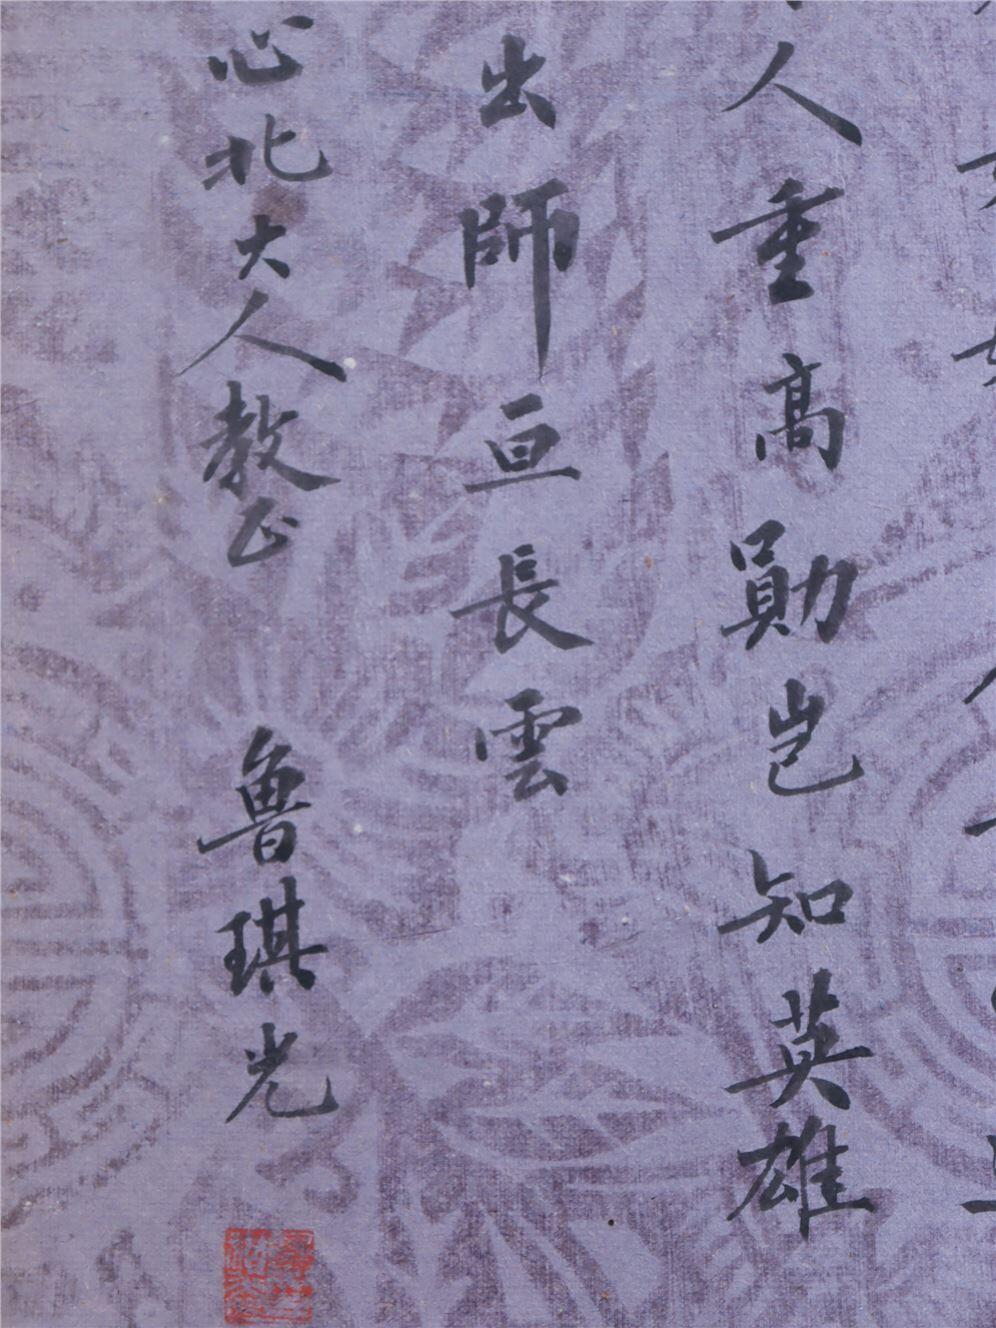 人重高勛豈知英雄
出師亘長雲
心北大人教正 魯琪光